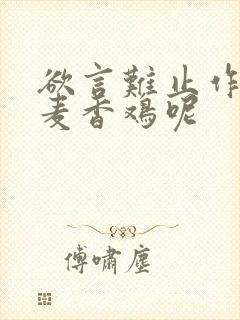 欲言難止作
麦香鸡呢
傅嘯塵